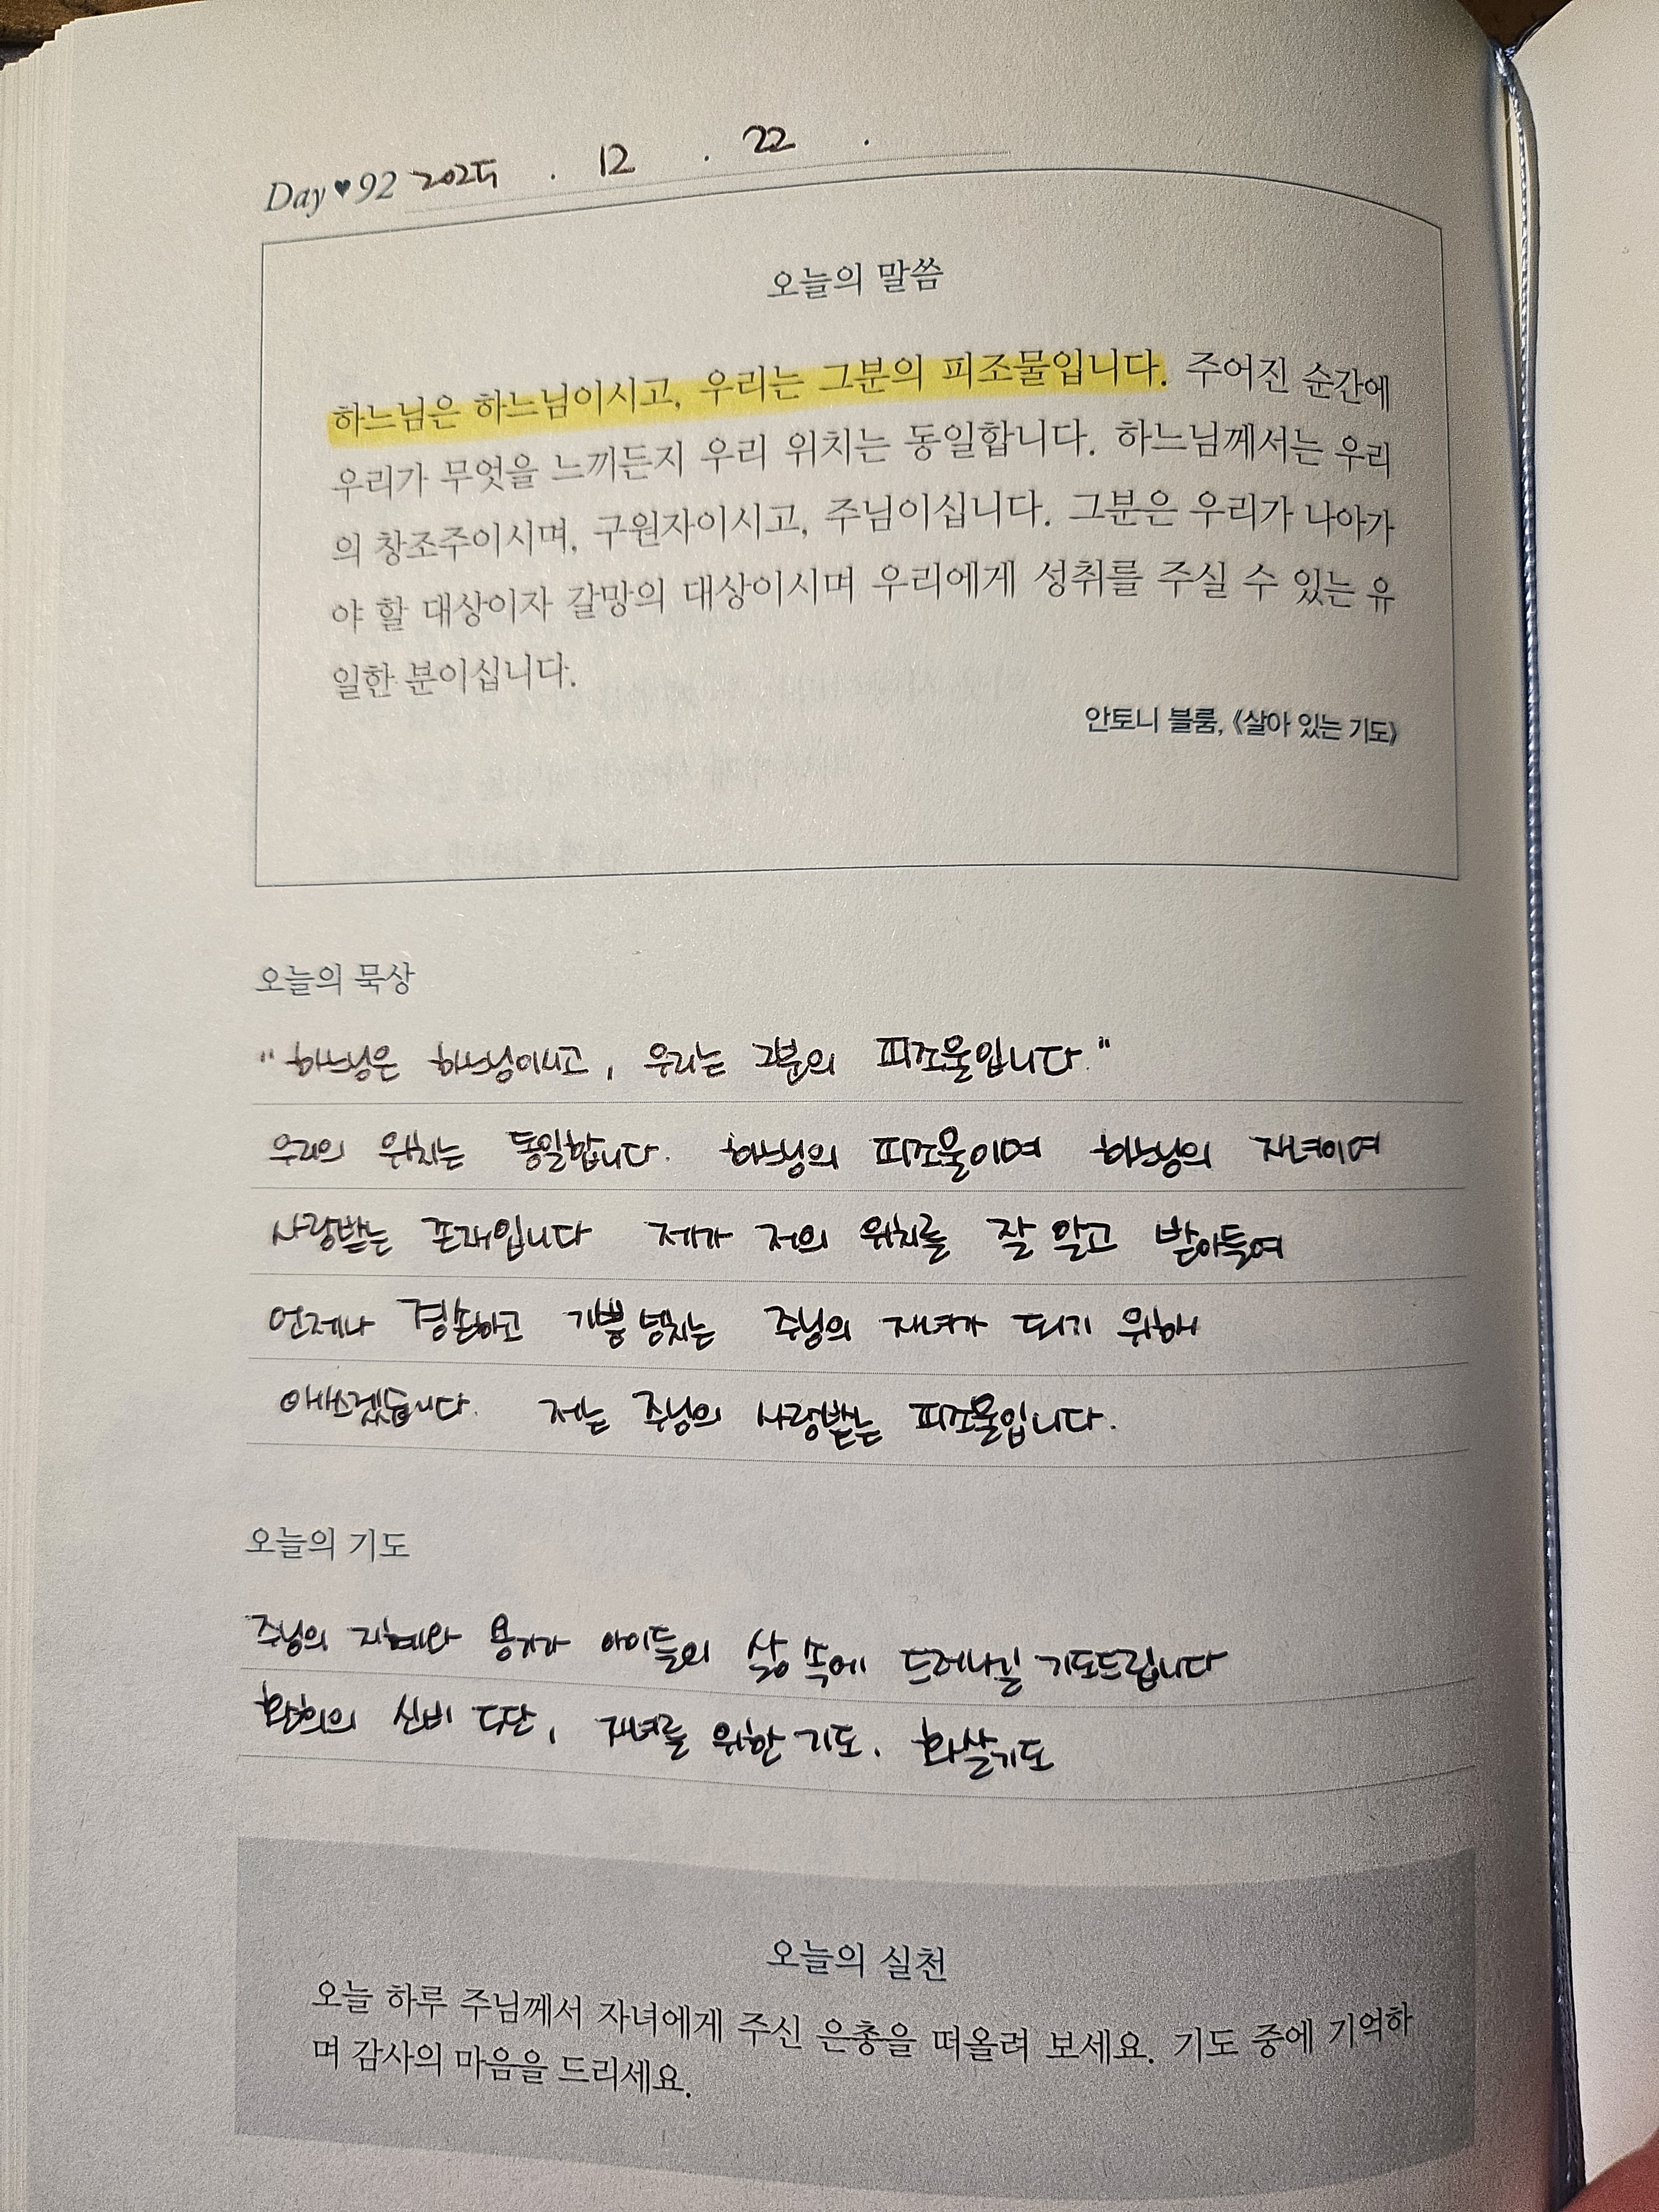 Day♥92 2025 . 12 . 22 .
오늘의 말씀
하느님은 하느님이시고, 우리는 그분의 피조물입니다. 주어진 순간에
우리가 무엇을 느끼든지 우리 위치는 동일합니다. 하느님께서는 우리
의 창조주이시며, 구원자이시고, 주님이십니다. 그분은 우리가 나아가
야 할 대상이자 갈망의 대상이시며 우리에게 성취를 주실 수 있는 유
일한 분이십니다.
안토니 블룸, 《살아 있는 기도》
오늘의 묵상
"하느님은 하느님이시고, 우리는 그분의 피조물입니다."
우리의 위치는 동일합니다. 하느님의 피조물이며 하느님의 자녀이며
사랑받는 존재입니다 제가 저의 위치를 잘 알고 받아들여
언제나 겸손하고 기쁨 넘치는 주님의 자녀가 되기 위해
애쓰겠습니다. 저는 주님의 사랑받는 피조물입니다.
오늘의 기도
주님의 지혜와 용기가 아이들의 삶 속에 드러나길 기도드립니다
환희의 신비 5단, 자녀를 위한 기도. 화살기도
오늘의 실천
오늘 하루 주님께서 자녀에게 주신 은총을 떠올려 보세요. 기도 중에 기억하
며 감사의 마음을 드리세요.